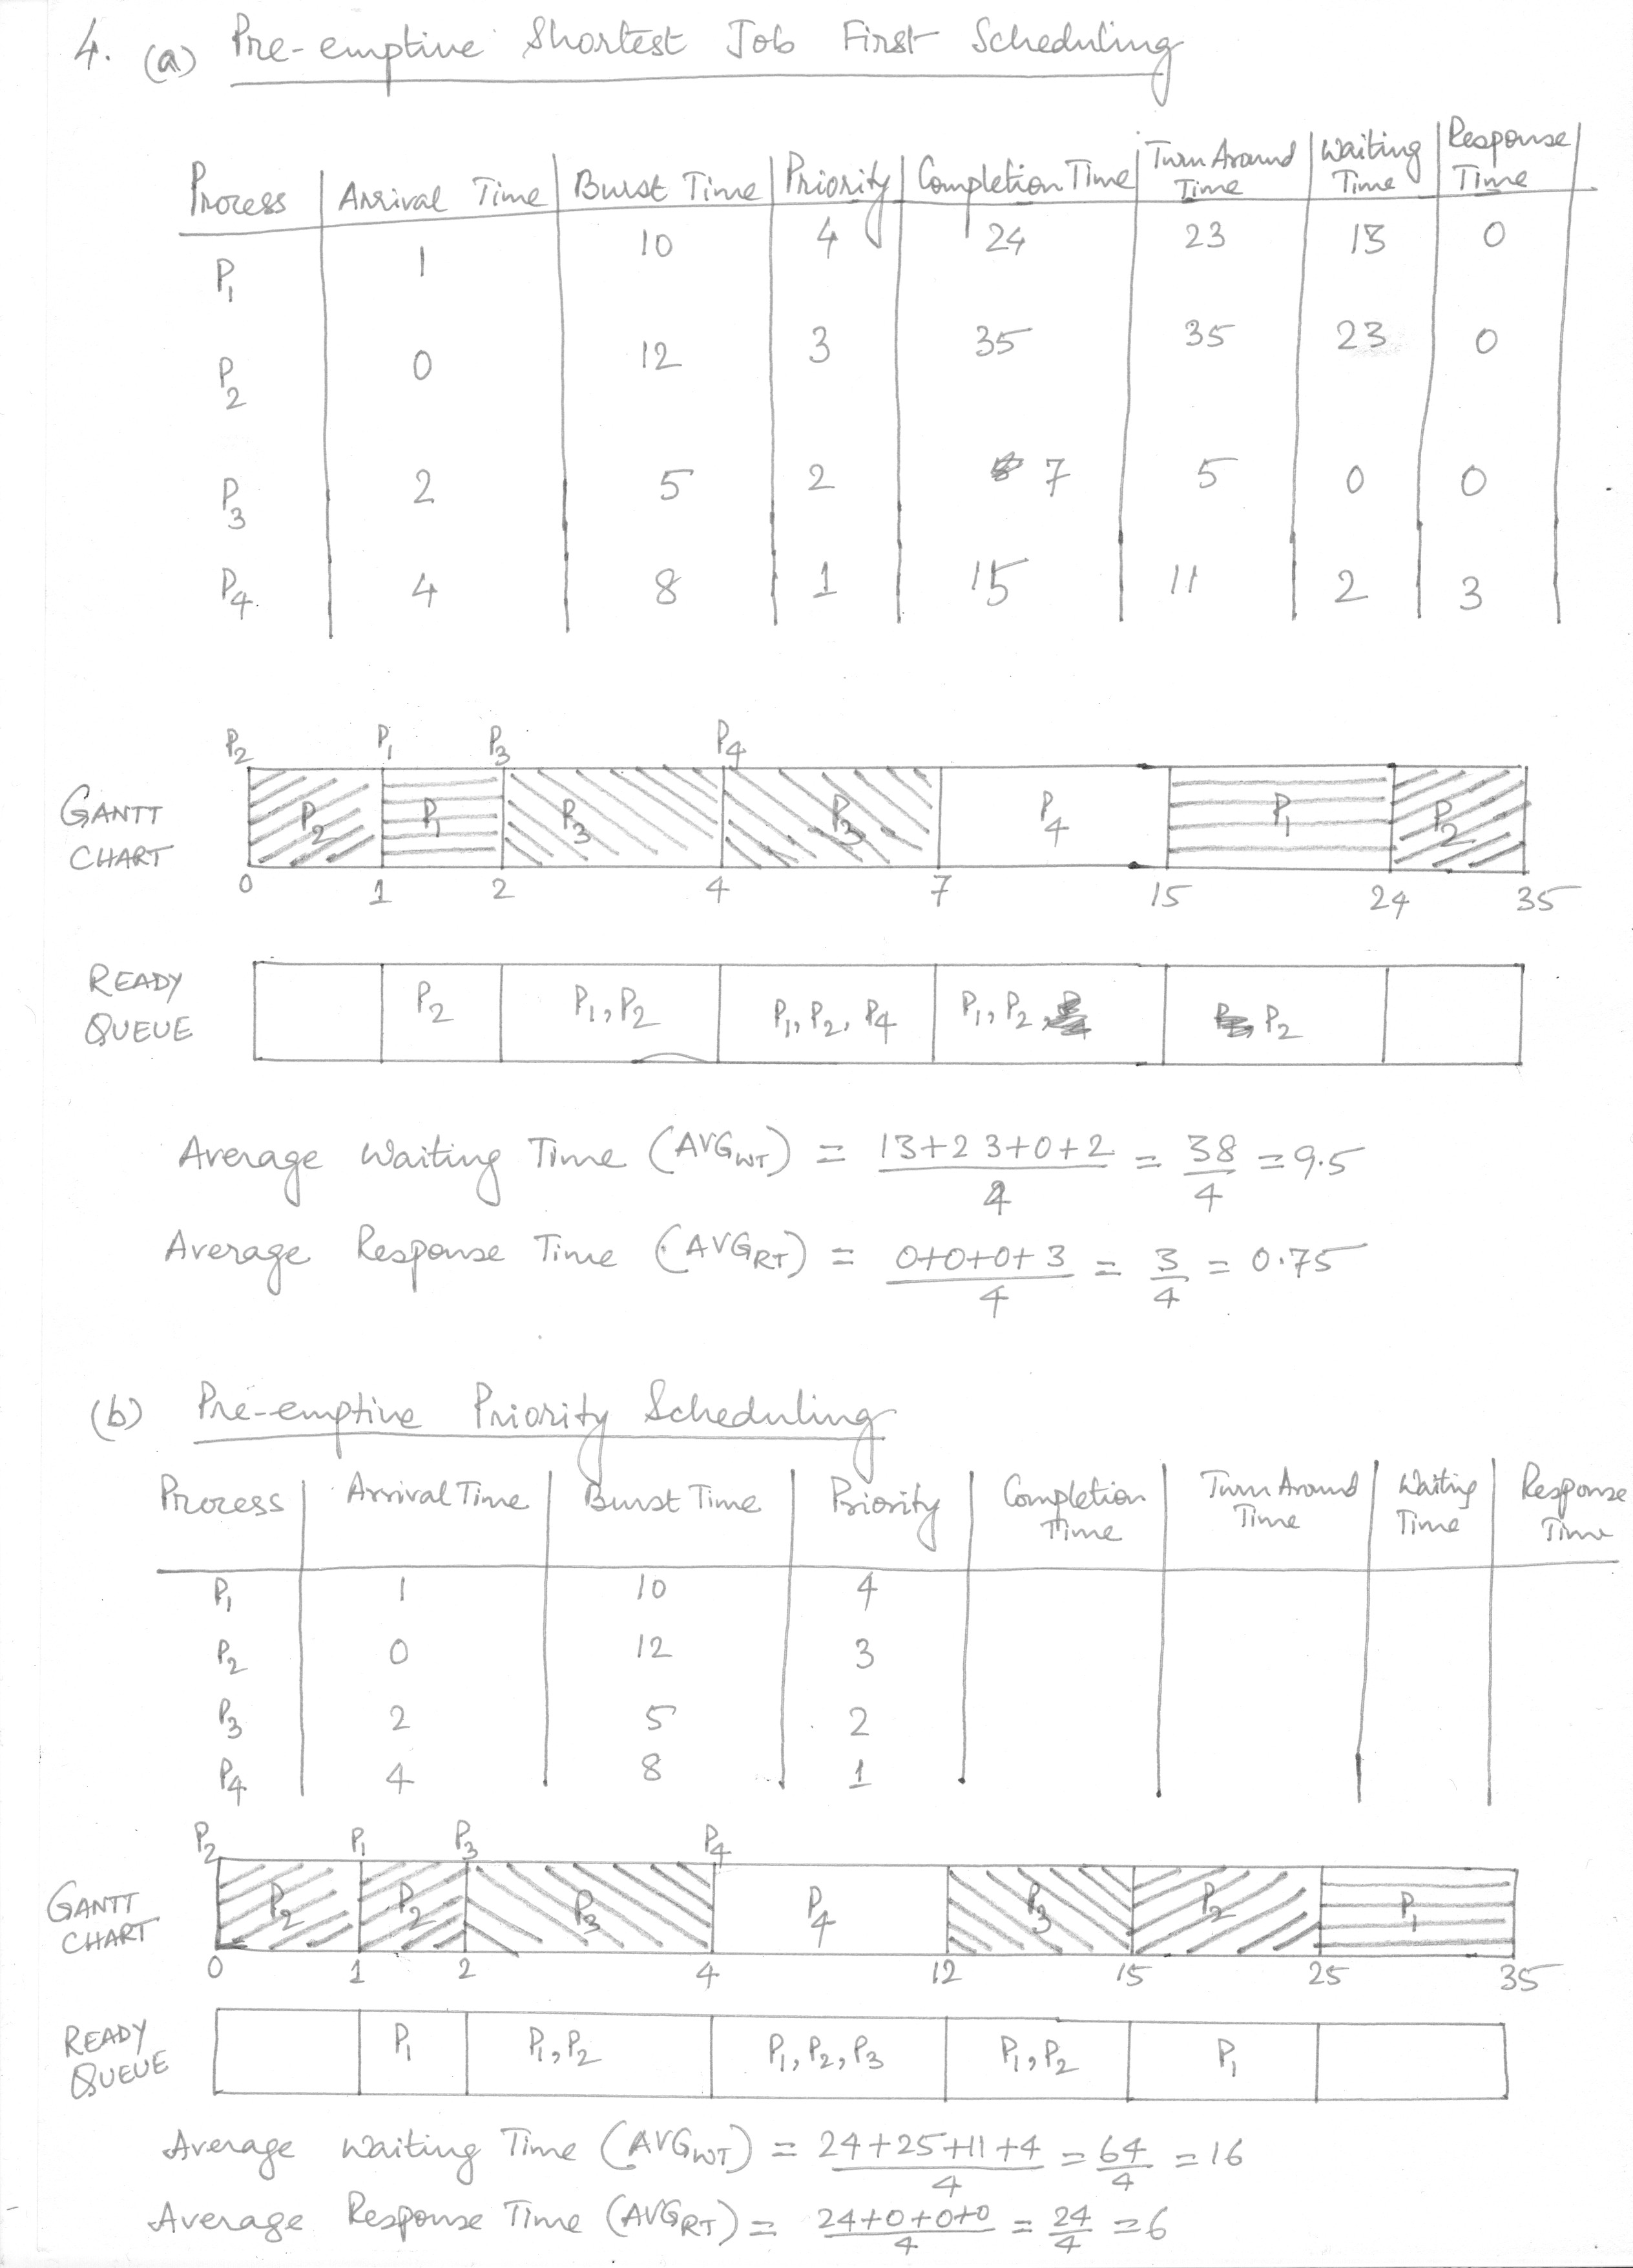 4. (a) Pre-emptive Shortest Job First Scheduling
Process | Arrival Time | Burst Time | Priority | Completion Time | Turn Around Time | Waiting Time | Response Time
P1 1 10 4 24 23 13 0
P2 0 12 3 35 35 23 0
P3 2 5 2 7 5 0 0
P4 4 8 1 15 11 2 3
P2 P1 P3 P4
GANTT CHART P2 P1 P3 P3 P4 P1 P2
0 1 2 4 7 15 24 35
READY QUEUE P2 P1, P2 P1, P2, P4 P1, P2, P2
Average Waiting Time (AVGWT) = 13+23+0+2/4 = 38/4 = 9.5
Average Response Time (AVGRT) = 0+0+0+3/4 = 3/4 = 0.75
(b) Pre-emptive Priority Scheduling
Process | Arrival Time | Burst Time | Priority | Completion Time | Turn Around Time | Waiting Time | Response Time
P1 1 10 4
P2 0 12 3
P3 2 5 2
P4 4 8 1
P2 P1 P3 P4
GANTT CHART P2 P2 P3 P4 P3 P2 P1
0 1 2 4 12 15 25 35
READY QUEUE P1 P1, P2 P1, P2, P3 P1, P2 P1
Average Waiting Time (AVGWT) = 24+25+11+4/4 = 64/4 = 16
Average Response Time (AVGRT) = 24+0+0+0/4 = 24/4 = 6